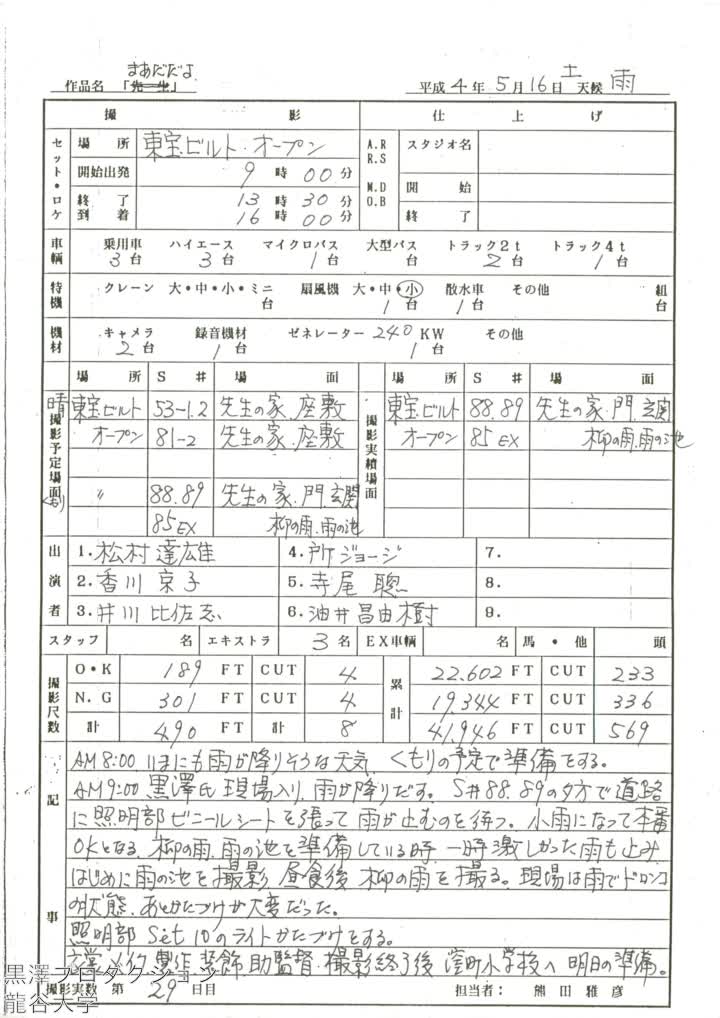 まあだだよ
作品名 「先生」 平成 4 年 5 月 16 日 土 天候 雨
撮 影 仕 上 げ
セット・ロケ 場 所 東宝ビルト・オープン A.R R.S M.D O.B スタジオ名
開始出発 9 時 00 分
終 了 13 時 30 分 開 始
到 着 16 時 00 分 終 了
車輌 乗用車 3台 ハイエース 3台 マイクロバス 1台 大型バス 台 トラック2t 2台 トラック4t 1台
特機 クレーン 大・中・小・ミニ 台 扇風機 大・中・小 1台 散水車 1台 その他 組 台
機材 キャメラ 2台 録音機材 1台 ゼネレーター 240 KW 1台 その他
場 所 S # 場 面 場 所 S # 場 面
撮影予定場面 撮影実績場面
晴 東宝ビルト 53-1.2 先生の家.座敷 東宝ビルト 88.89 先生の家.門.玄関
オープン 81-2 先生の家.座敷 オープン 85 EX 柳の雨.雨の池
〃 88.89 先生の家.門.玄関
85 EX 柳の雨.雨の池
出演者 1.松村達雄 4.所ジョージ 7.
2.香川京子 5.寺尾聰 8.
3.井川比佐志 6.油井昌由樹 9.
スタッフ 名 エキストラ 3名 EX車輌 名 馬・他 頭
撮影尺数 O・K 189 FT CUT 4 累計 22.602 FT CUT 233
N.G 301 FT CUT 4 19.344 FT CUT 336
計 490 FT 計 8 41.946 FT CUT 569
記事
AM8:00 いまにも雨が降りそうな天気、くもりの予定で準備をする。
AM9:00 黒澤氏現場入り、雨が降りだす。S#88.89の夕方で道路
に照明部ビニールシートを張って雨が止むのを待つ。小雨になって本番
OKとなる、柳の雨.雨の池を準備している時 一時激しかった雨も止み
はじめに雨の池を撮影 昼食後 柳の雨を撮る。現場は雨でドロンコ
の状態、あとかたづけが大変だった。
照明部 Set 10のライトかたづけをする。
製作 装飾 助監督・撮影終了後 窪町小学校へ 明日の準備。
撮影実数 第 29 日目 担当者: 熊田雅彦
黒澤プロダクション
龍谷大学